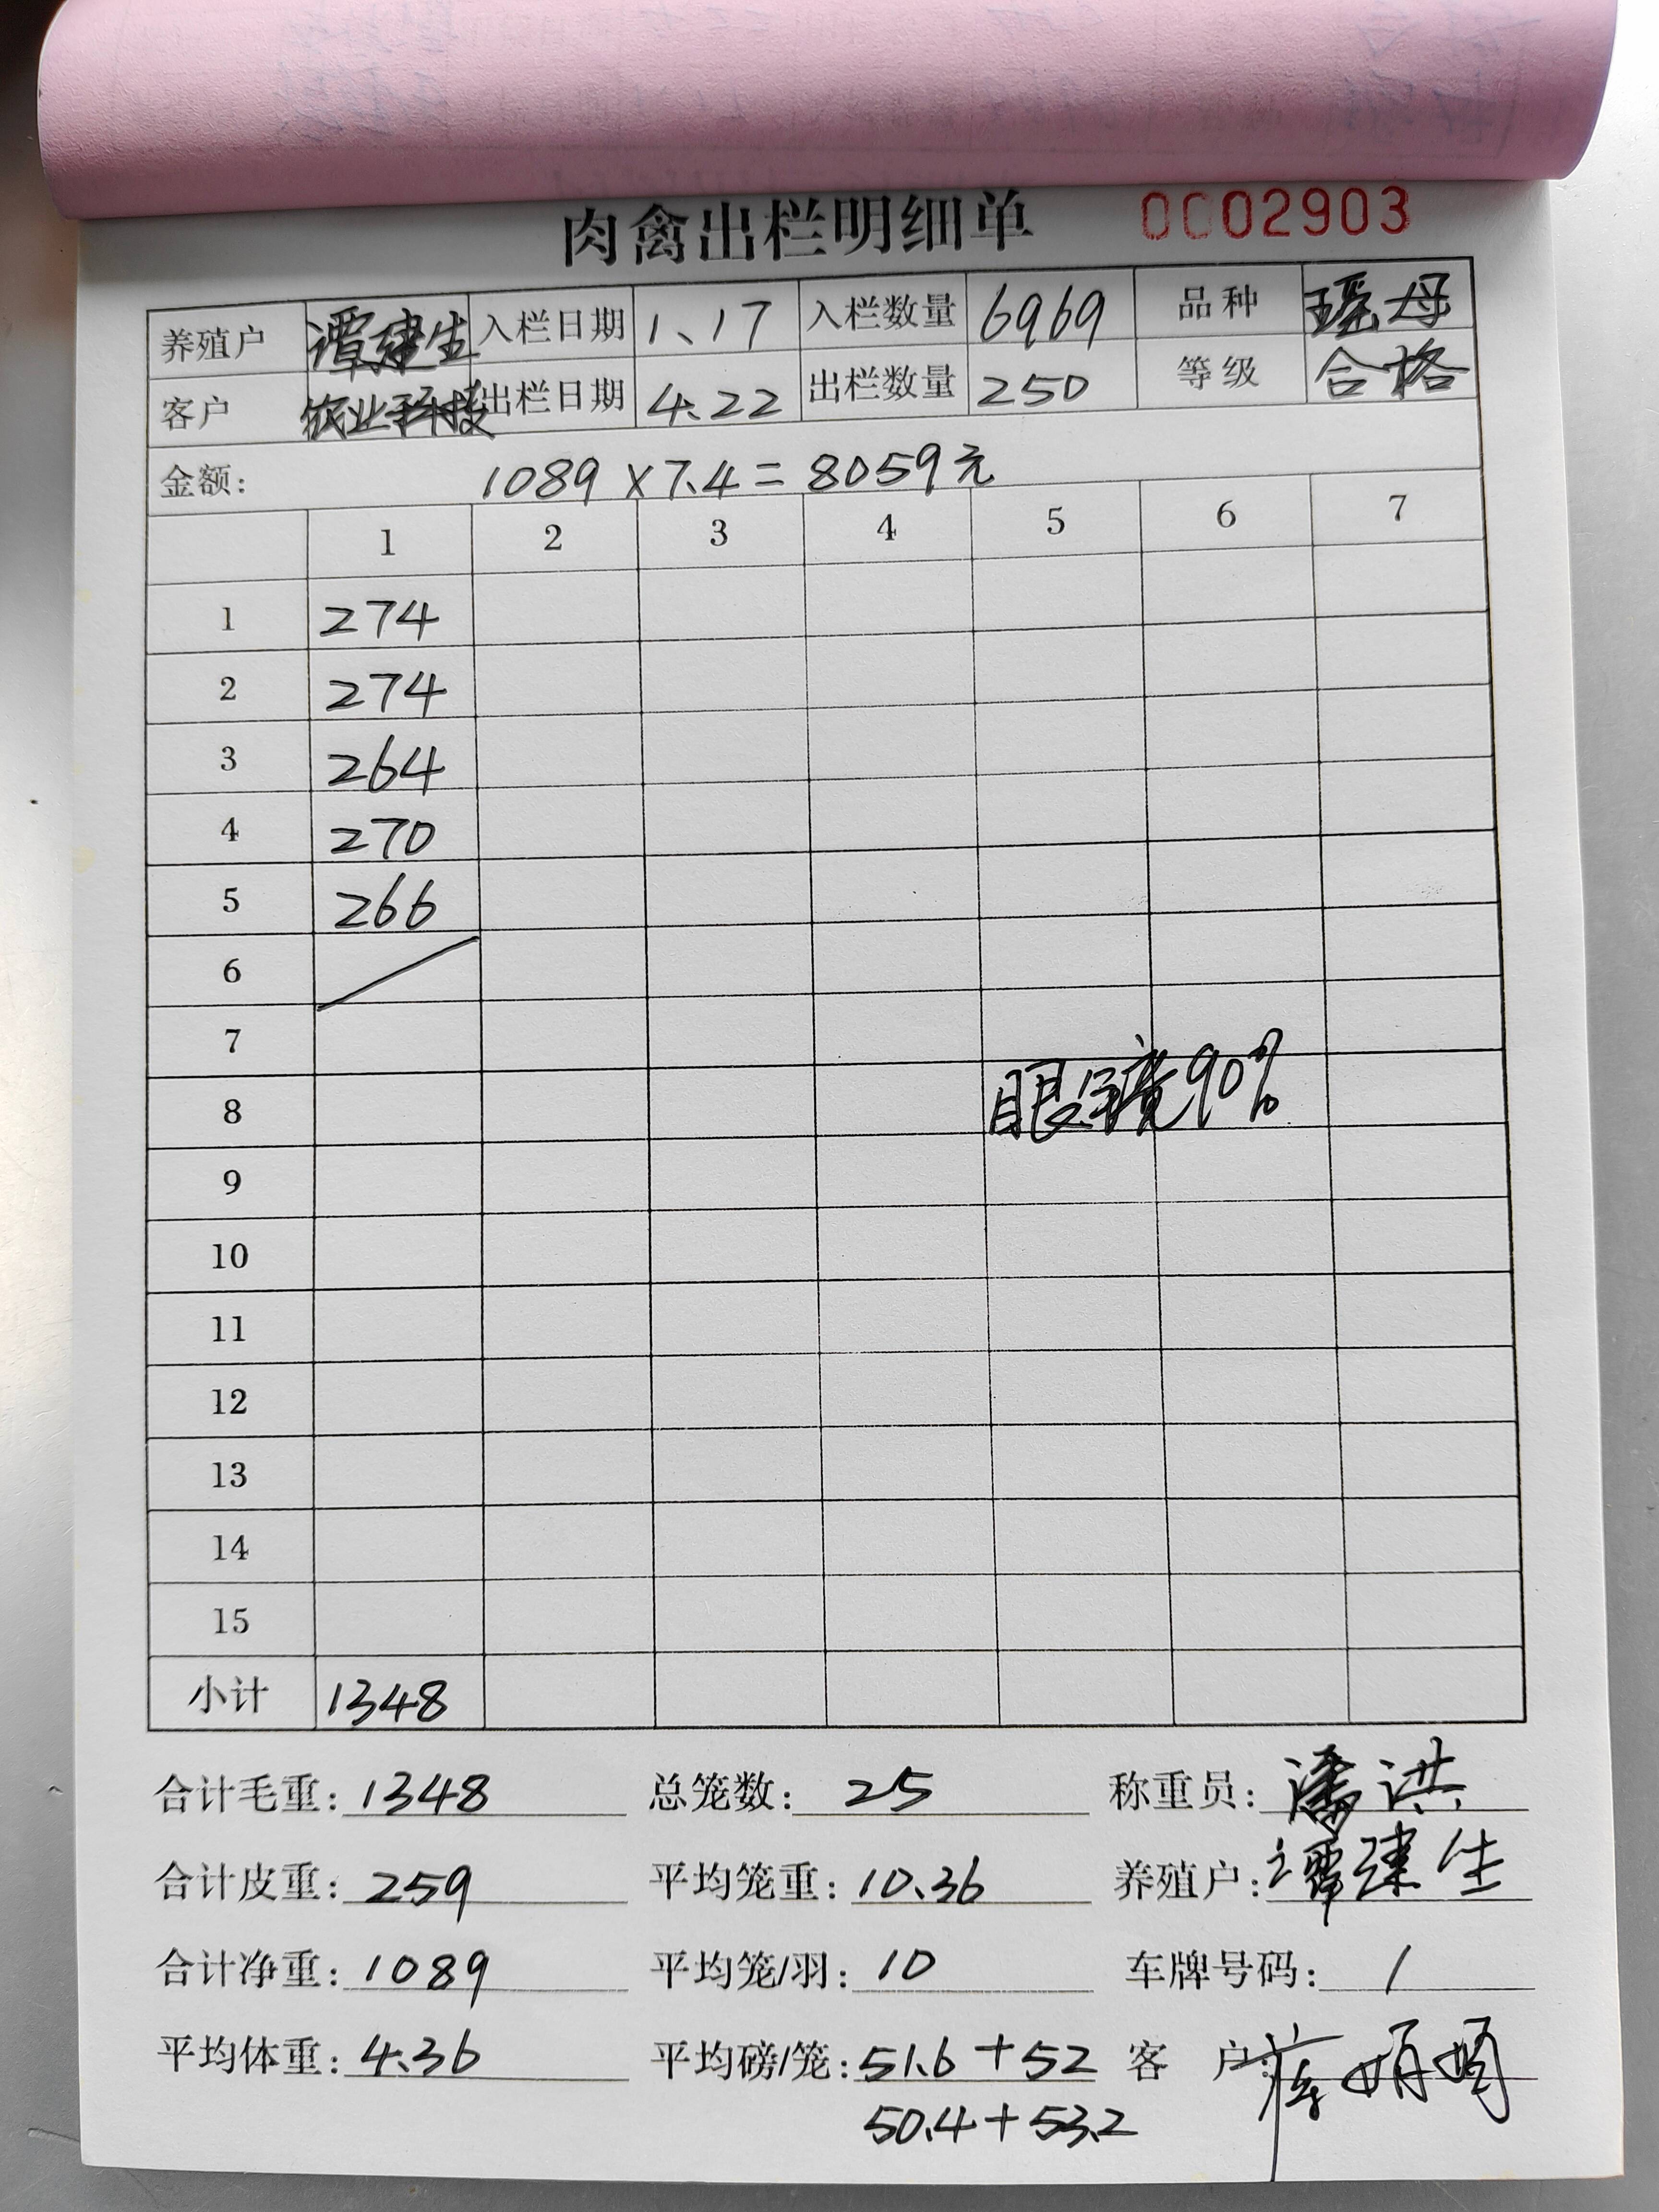 肉禽出栏明细单 0002903
养殖户 谭建生 入栏日期 1、17 入栏数量 6969 品种 瑶母
客户 农业科技 出栏日期 4.22 出栏数量 250 等级 合格
金额: 1089×7.4=8059元
1 2 3 4 5 6 7
1 274
2 274
3 264
4 270
5 266
6
7
8 眼镜90%
9
10
11
12
13
14
15
小计 1348
合计毛重: 1348 总笼数: 25 称重员: 潘洪
合计皮重: 259 平均笼重: 10.36 养殖户: 谭建生
合计净重: 1089 平均笼/羽: 10 车牌号码: /
平均体重: 4.36 平均磅/笼: 51.6+52 客户:
50.4+53.2